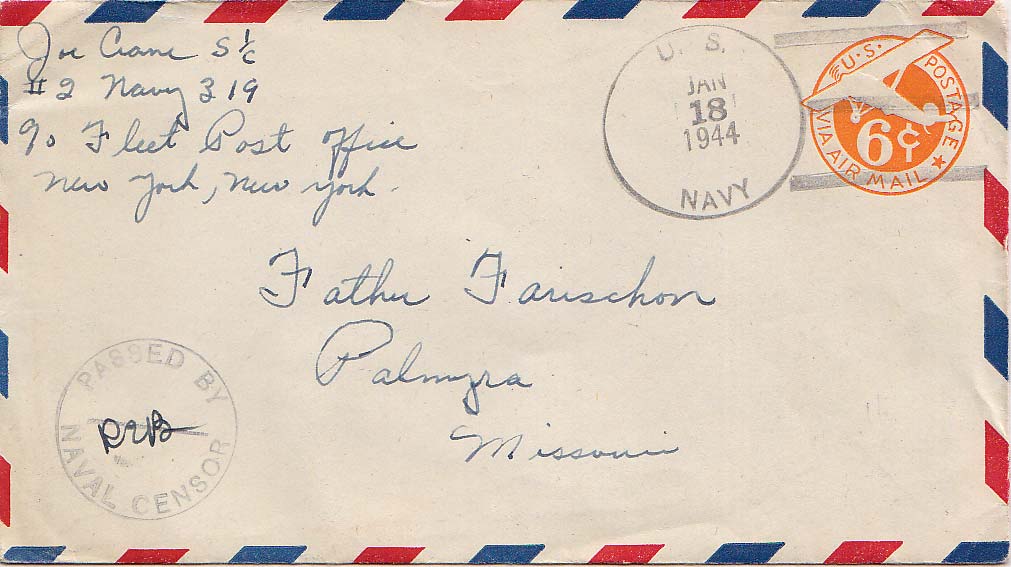 Joe Crane S 1/c
#2 Navy 319
c/o Fleet Post office
New York, New York.
U. S.
JAN
18
1944
NAVY
U.S. POSTAGE
6¢
VIA AIR MAIL
Father Farischon
Palmyra
Missouri
PASSED BY
NAVAL CENSOR